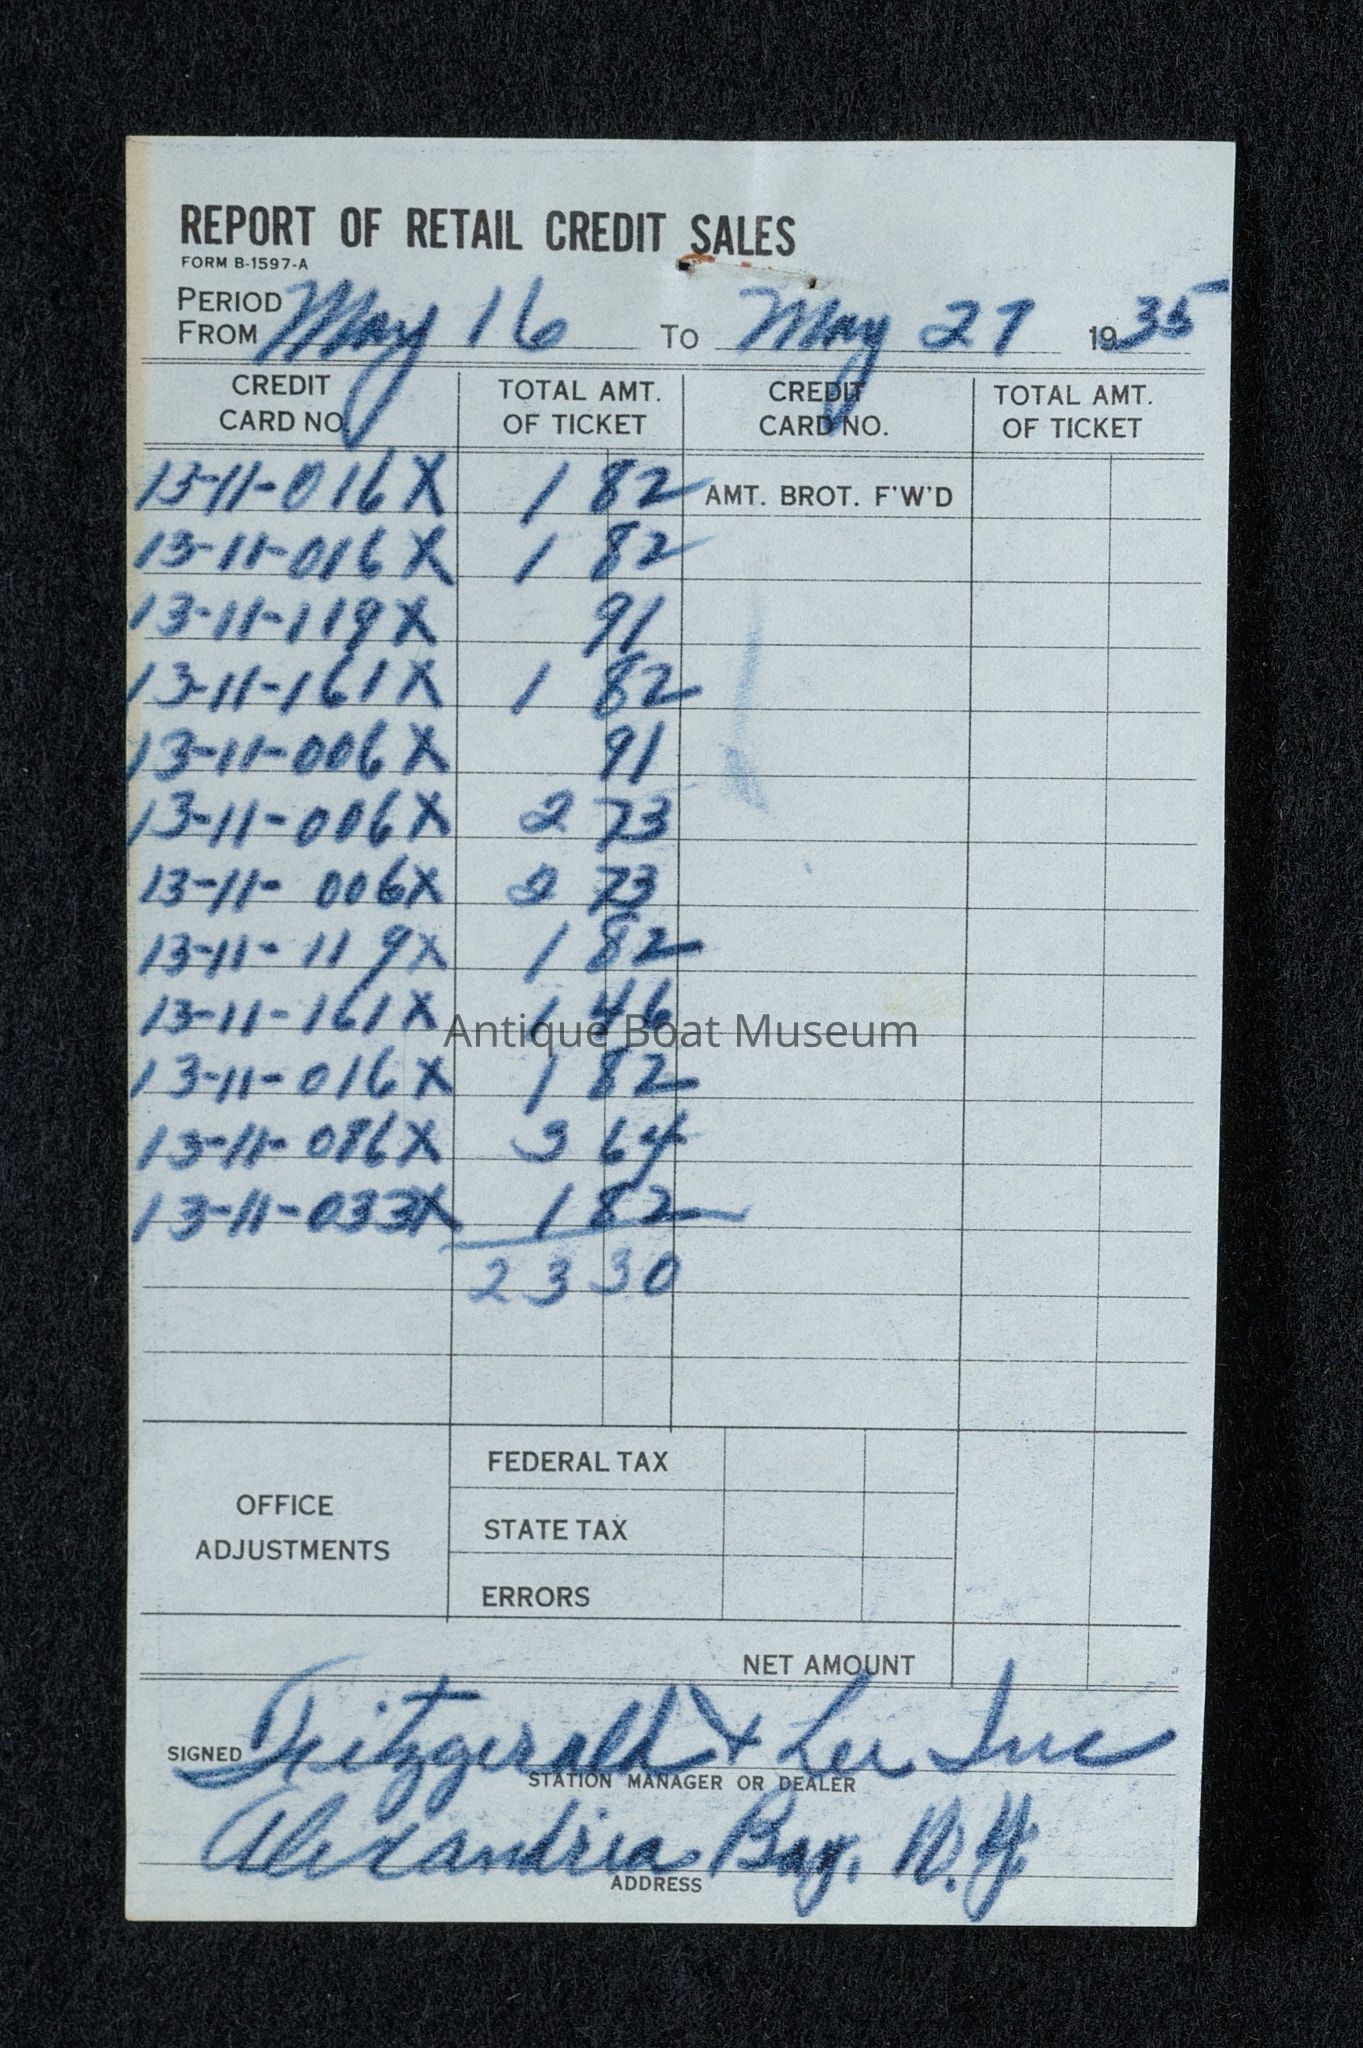 REPORT OF RETAIL CREDIT SALES
FORM B-1597-A
PERIOD FROM May 16 To May 27 1935
CREDIT CARD NO. TOTAL AMT. OF TICKET CREDIT CARD NO. TOTAL AMT. OF TICKET
13-11-016X 1 82 AMT. BROT. F'W'D
13-11-016X 1 82
13-11-119X 91
13-11-161X 1 82
13-11-006X 91
13-11-006X 2 73
13-11-006X 2 73
13-11-119X 1 82
13-11-161X 1 46
Antique Boat Museum
13-11-016X 1 82
13-11-086X 3 64
13-11-033X 1 82
23 30
OFFICE ADJUSTMENTS
FEDERAL TAX
STATE TAX
ERRORS
NET AMOUNT
SIGNED Fitzgerald & Lee Inc
STATION MANAGER OR DEALER
Alexandria Bay, N.Y.
ADDRESS